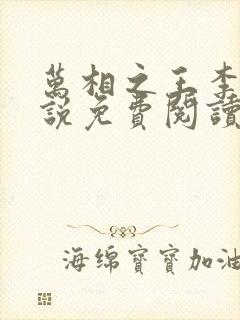 萬相之王李
說免費閱讀
海绵寶寶加油